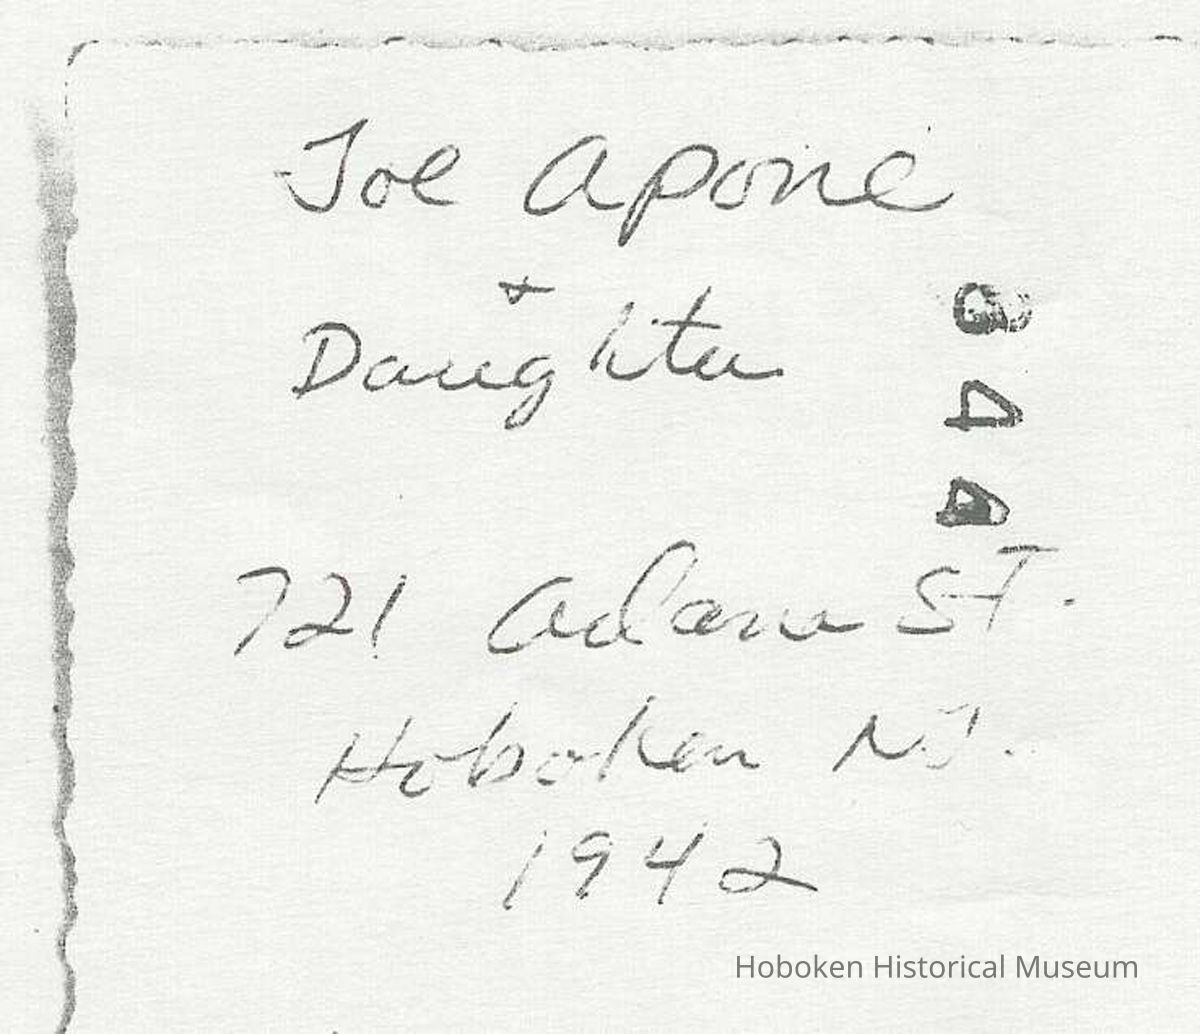 Joe Apone
+
Daughter
721 Adams St.
Hoboken N.J.
1942
Hoboken Historical Museum